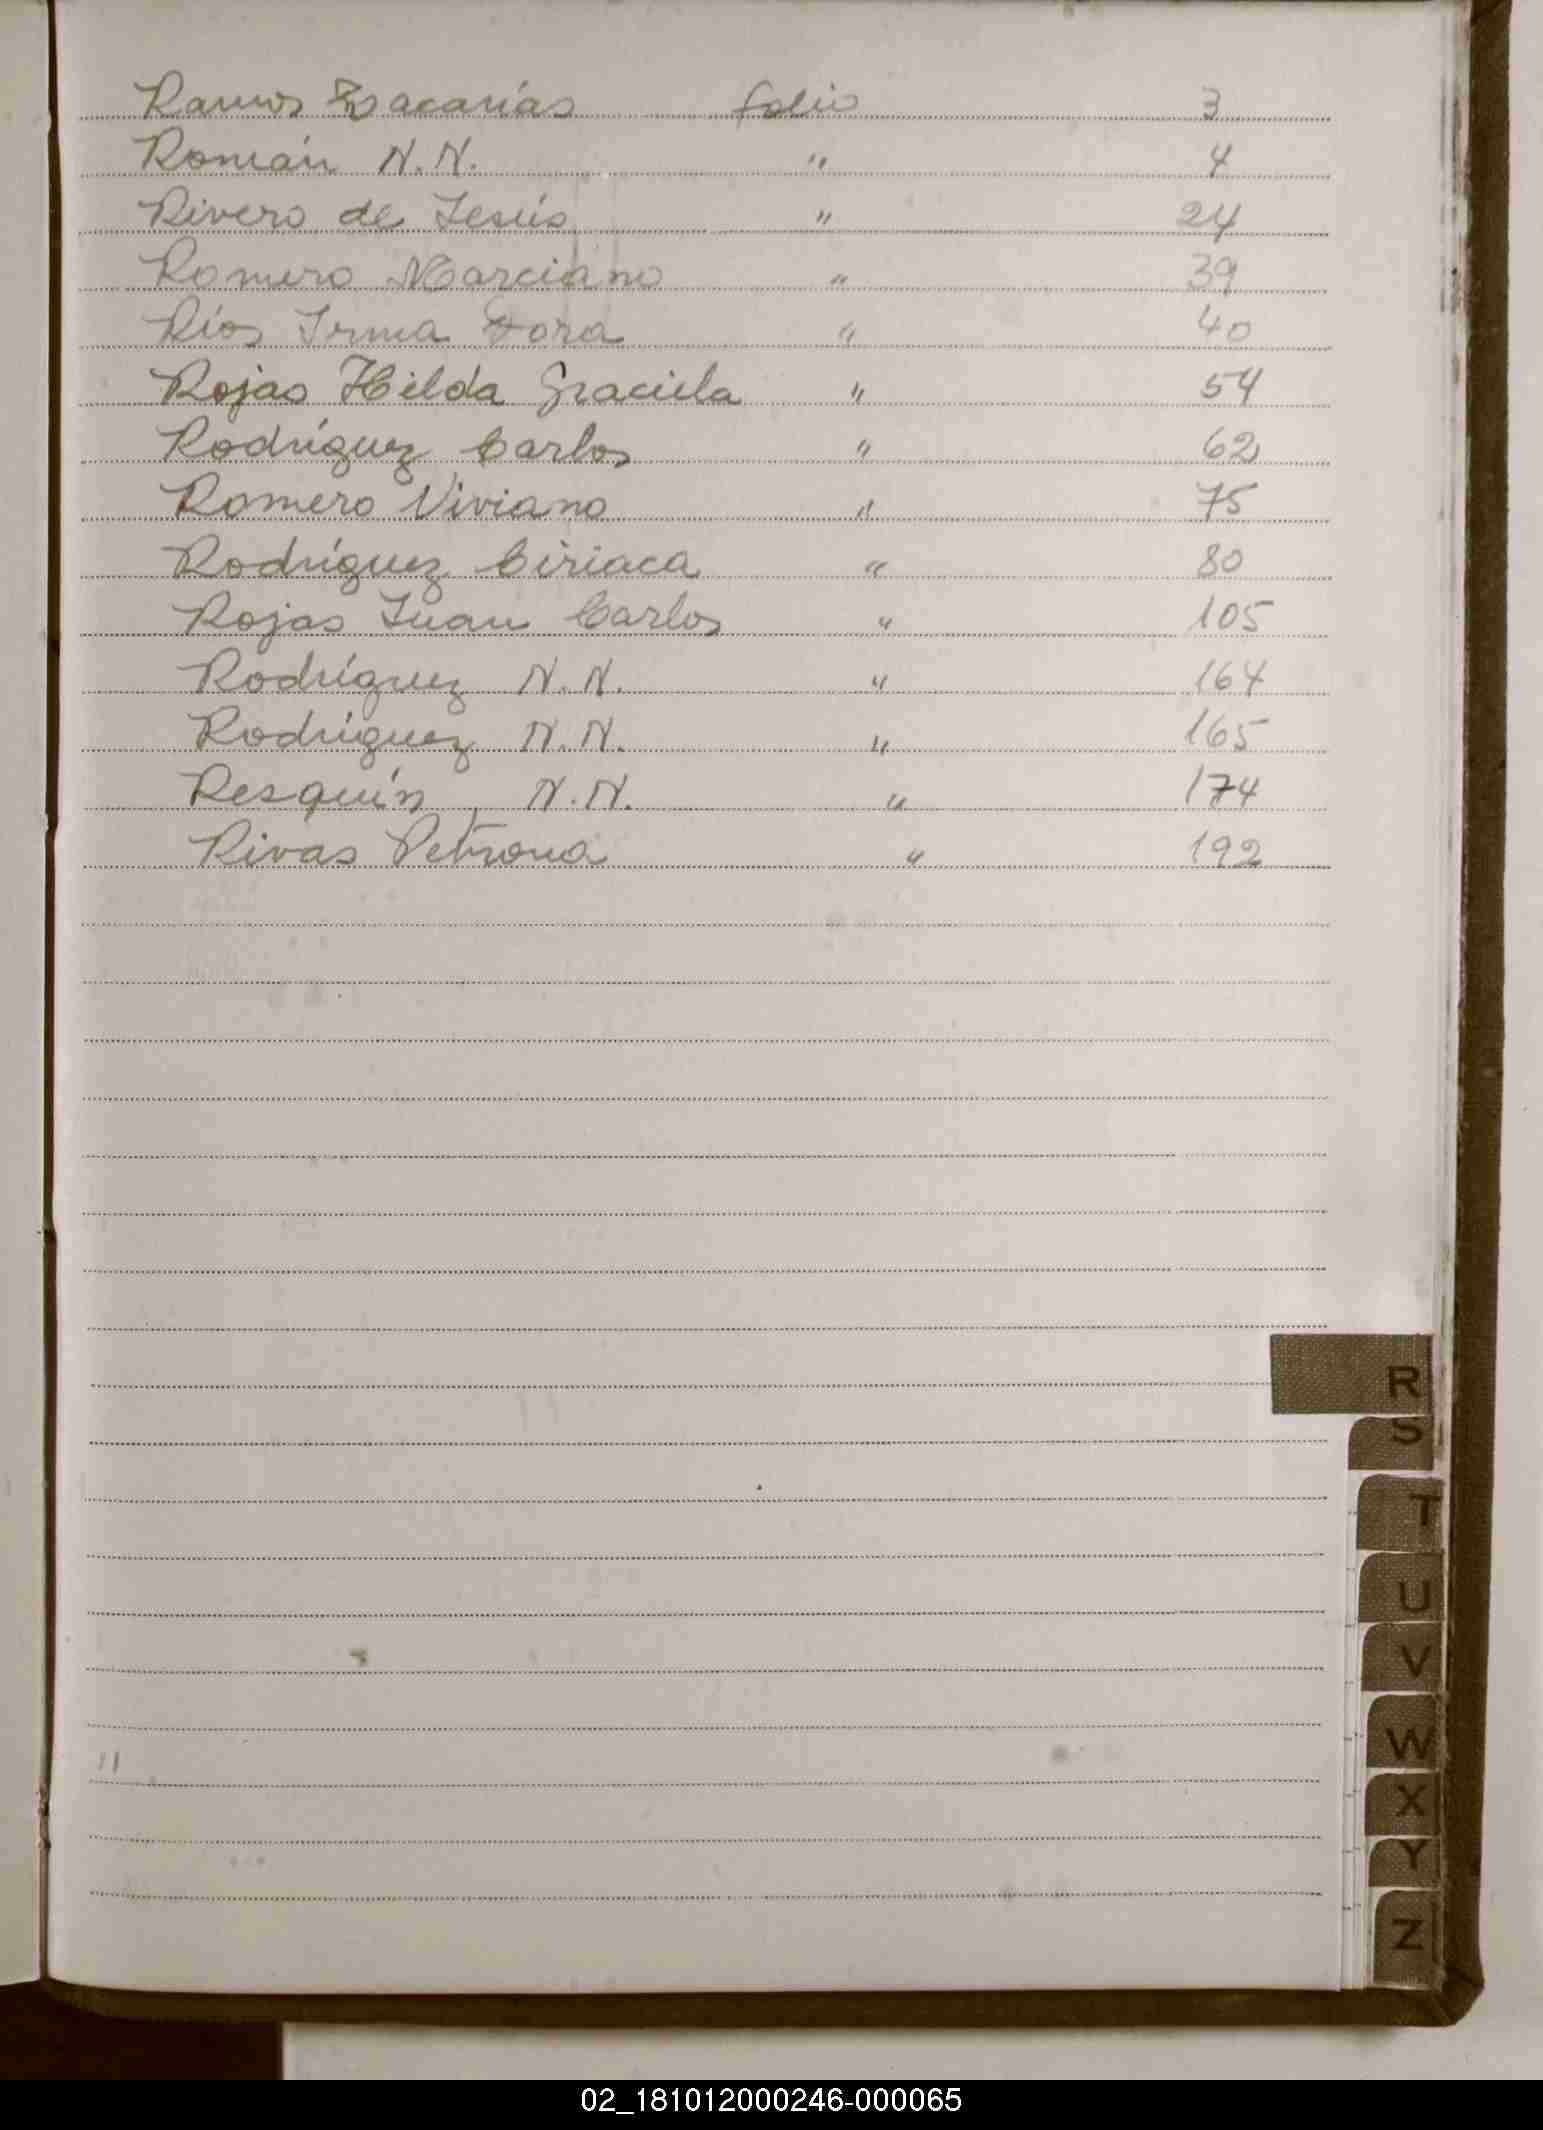 Ramos Zacarías folio 3
Román N.N. " 4
Rivero de Jesús " 24
Romero Marciano " 39
Ríos Irma Dora " 40
Rojas Hilda Graciela " 54
Rodríguez Carlos " 62
Romero Viviano " 75
Rodríguez Ciriaca " 80
Rojas Juan Carlos " 105
Rodríguez N.N. " 164
Rodríguez N.N. " 165
Resquín, N.N. " 174
Rivas Petrona " 192
R
S
T
U
V
W
X
Y
Z
02_181012000246-000065